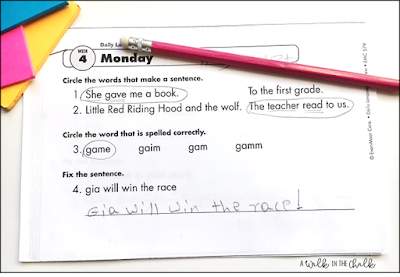 Daily La
WEEK 4 Monday
Circle the words that make a sentence.
1. She gave me a book. To the first grade.
2. Little Red Riding Hood and the wolf. The teacher read to us.
Circle the word that is spelled correctly.
3. game gaim gam gamm
Fix the sentence.
4. gia will win the race
Gia will win the race!
A Walk IN THE Chalk